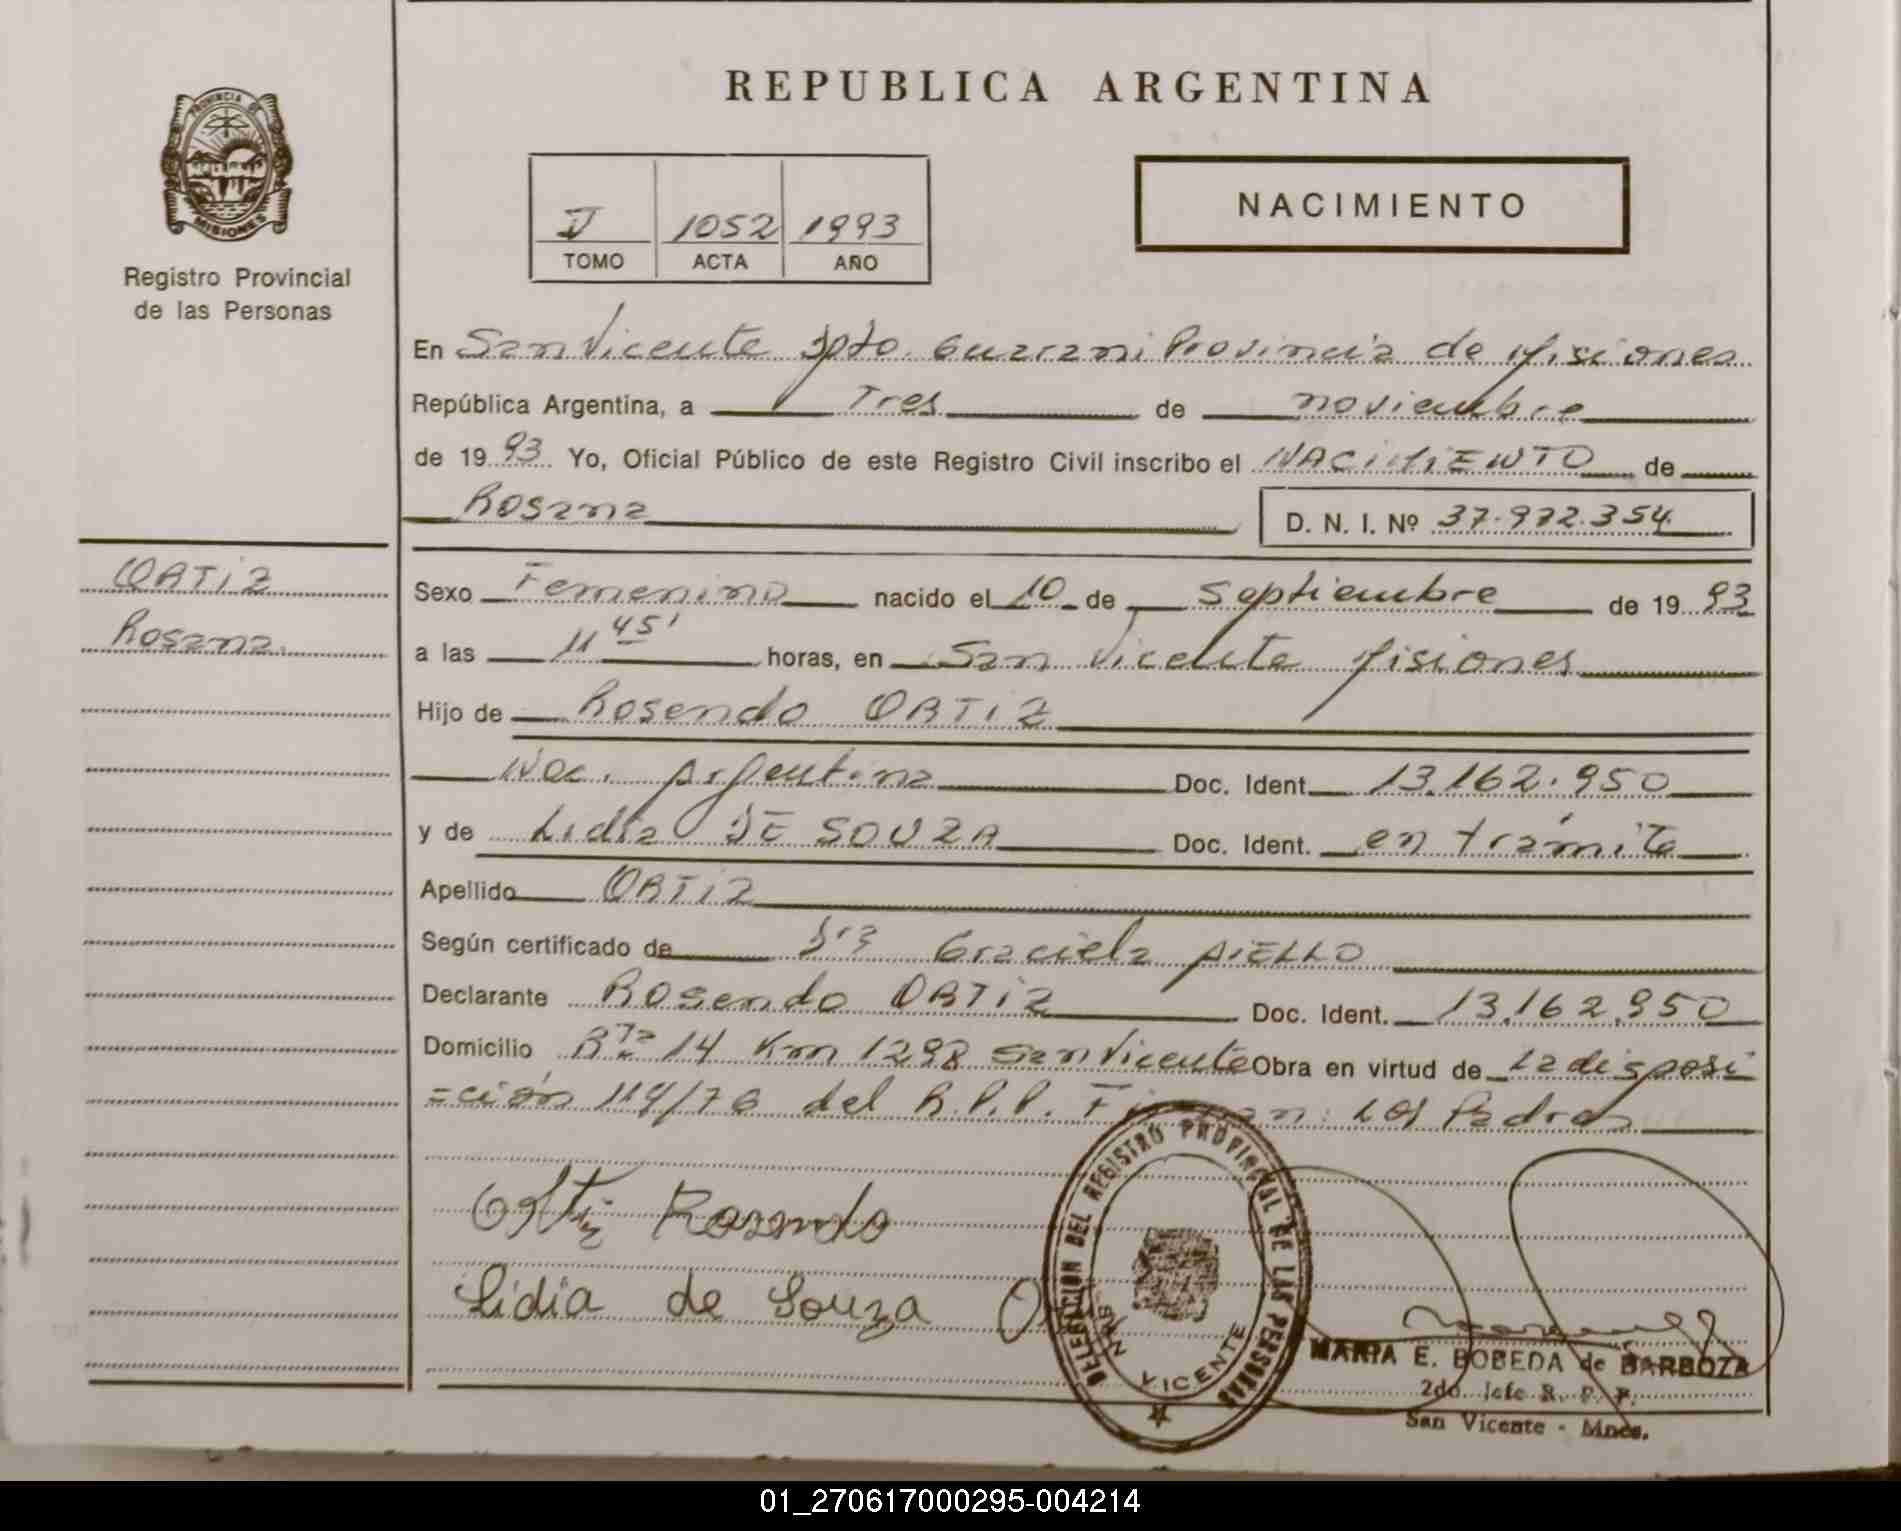 REPUBLICA ARGENTINA
PROVINCIA DE
MISIONES
Registro Provincial
de las Personas
1052 1993
TOMO ACTA AÑO
NACIMIENTO
En San Vicente Dpto. Guarani Provincia de Misiones
República Argentina, a Tres de noviembre
de 1993. Yo, Oficial Público de este Registro Civil inscribo el NACIMIENTO de
Rosana
D. N. I. Nº 37.972.354
ORTIZ
Rosana.
Sexo Femenino nacido el 10 de Septiembre de 1993
a las 11 45' horas, en San Vicente Misiones
Hijo de Rosendo ORTIZ
Nac. Argentina Doc. Ident. 13.162.950
y de Lidia DE SOUZA Doc. Ident. en trámite
Apellido ORTIZ
Según certificado de Dra Graciela AIELLO
Declarante Rosendo ORTIZ Doc. Ident. 13.162.950
Domicilio Rta 14 Km 1298 San Vicente Obra en virtud de La disposi
=ción 114/76 del R.P.P. Los Padres
Ortiz Rosendo
Lidia de Souza
DELEGACION DEL REGISTRO PROVINCIAL DE LAS PERSONAS
SAN VICENTE
MARIA E. BOBEDA de BARBOZA
2do. Jefe R. P. P.
San Vicente - Mnes.
01_270617000295-004214